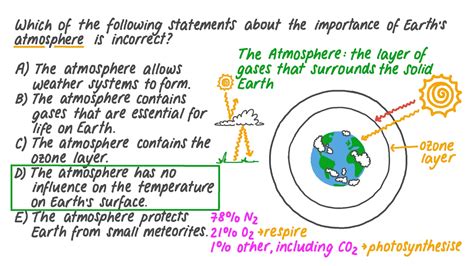 Which of the following statements about the importance of Earth's
atmosphere is incorrect?
A) The atmosphere allows
weather systems to form.
B) The atmosphere contains
gases that are essential for
life on Earth.
C) The atmosphere contains the
ozone layer.
D) The atmosphere has no
influence on the temperature
on Earth's surface.
E) The atmosphere protects
Earth from small meteorites.
The Atmosphere: the layer of
gases that surrounds the solid
Earth
ozone
layer
78% N₂
21% O₂ → respire
1% other, including CO₂ → photosynthesise